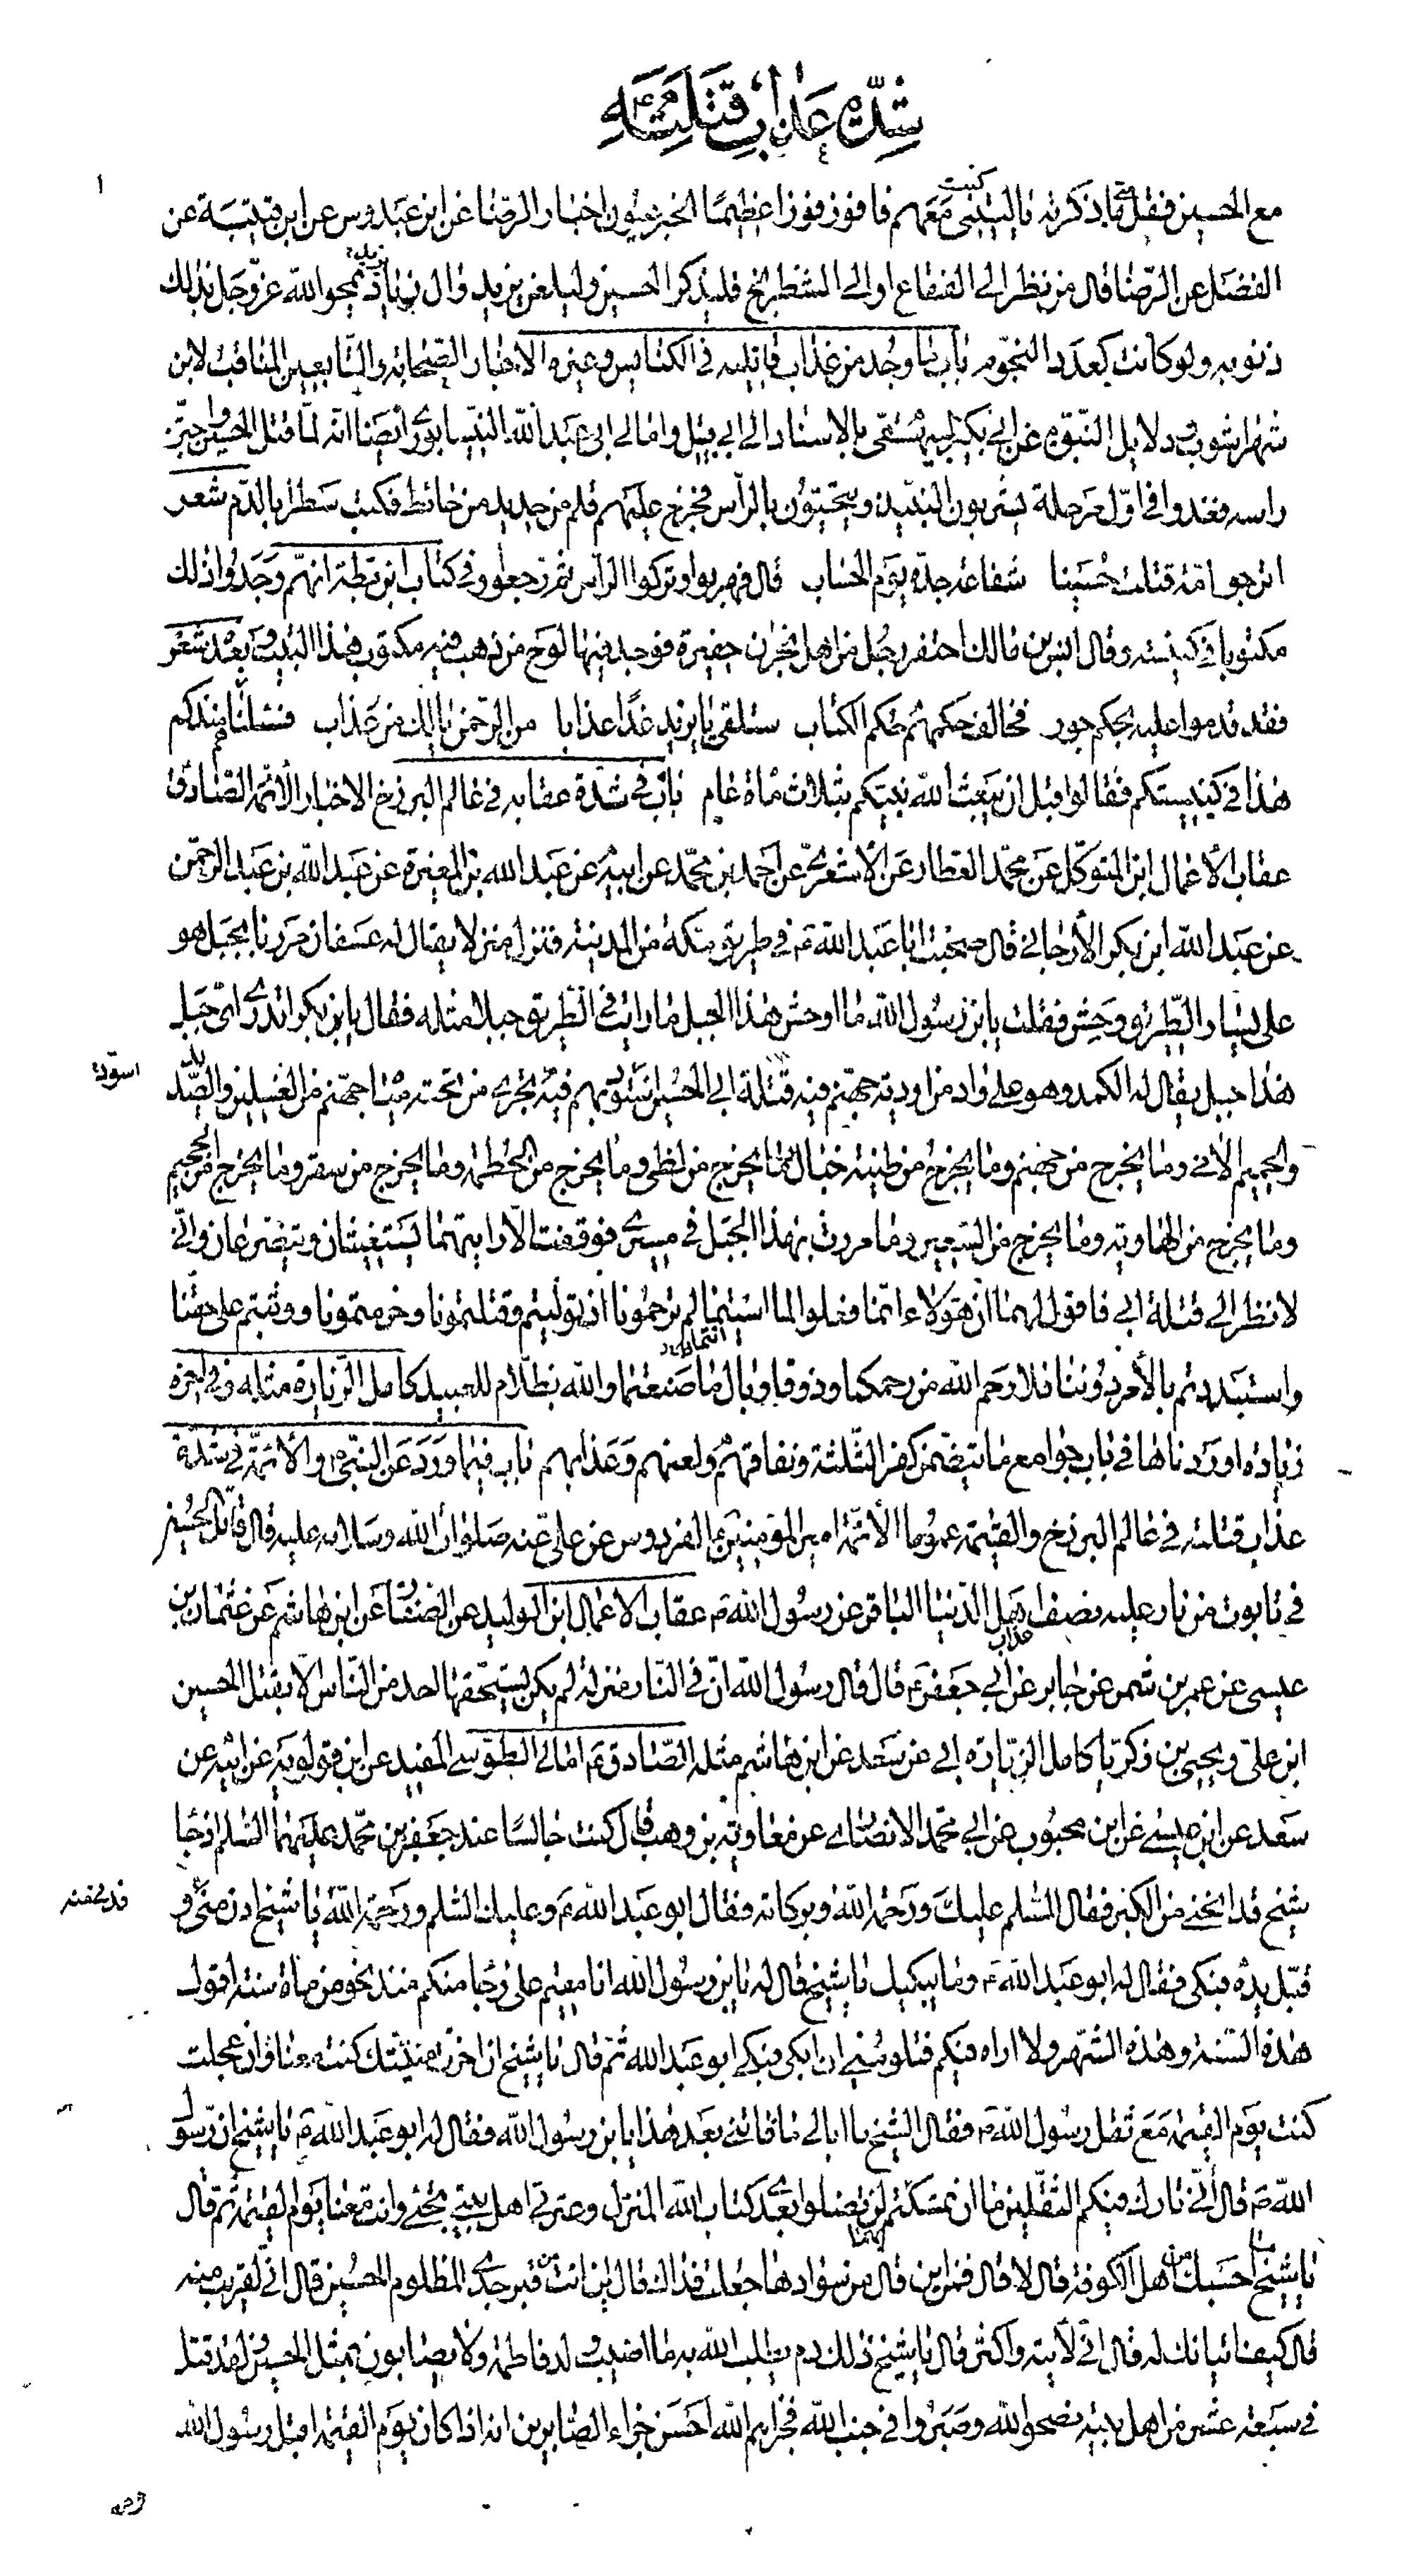 شدة عذاب قتلته
مع الحسين فقل متى ما ذكرته يا ليتنى كنت معهم فافوز فوزا عظيما الخبر عيون اخبار الرضا عن ابن عبدوس عن ابن قتيبة عن
الفضل عن الرضا قال من نظر الى الفقاع او الى الشطرنج فليذكر الحسين وليلعن يزيد وال زياد يمحو الله عز وجل بذلك
ذنوبه ولو كانت كعدد النجوم باب ما وجد من عذاب قاتليه فى الكنايس وغيره الاخبار الصحابة والتابعين المناقب لابن
شهراشوب ودلايل النبوة عن ابى بكر البيهقى بالاسناد الى ابى قبيل وامالى ابى عبد الله النيسابورى ايضا انه لما قتل الحسين واجتز
راسه قعدوا فى اول مرحلة يشربون النبيذ ويتحيون بالراس فخرج عليهم قلم من حديد من حائط فكتب سطرا بالدم شعر
اترجو امة قتلت حسينا شفاعة جده يوم الحساب قال فهربوا وتركوا الراس ثم رجعوا وفى كتاب ابن بطة انهم وجدوا ذلك
مكتوبا فى كنيسة وقال انس بن مالك احتفر رجل من اهل نجران حفيرة فوجد فيها لوح من ذهب فيه مكتوب هذا البيت وبعده شعر
فقد قدموا عليه بحكم جور فخالف حكمهم حكم الكتاب ستلقى يا يزيد غدا عذابا من الرحمن يا لك من عذاب فسئلناهم منذ كم
هذا فى كنيستكم فقالوا قبل ان يبعث الله نبيكم بثلاث مأة عام باب فى شدة عقابه فى عالم البرزخ الاخبار الائمة الصادق
عقاب الأعمال ابن المتوكل عن محمد العطار عن الأشعرى عن احمد بن محمد عن ابيه عن عبد الله بن المغيرة عن عبد الله بن عبد الرحمن
عن عبد الله ابن بكر الأرجانى قال صحبت ابا عبد الله ع فى طريق مكة من المدينة فنزل منزلا يقال له عسفان ثم مررنا بجبل هو
على يسار الطريق وحش فقلت يا بن رسول الله ما اوحش هذا الجبل ما رايت فى الطريق جبلا مثله فقال يا بن بكر اتدرى اى جبل
هذا جبل يقال له الكمد وهو على واد من اودية جهنم فيه قتلة ابى الحسين استودعهم فيه يجرى من تحته مياه جهنم من الغسلين والصديد
والحميم الآنى وما يخرج من جهنم وما يخرج من طينة خبال وما يخرج من لظى وما يخرج من الحطمة وما يخرج من سقر وما يخرج من الجحيم
وما يخرج من الهاوية وما يخرج من السعير وما مررت بهذا الجبل فى مسيرى فوقفت الا رايتهما يستغيثان ويتضرعان وانى
لانظر الى قتلة ابى فاقول لهما ان هؤلاء انما فعلوا لما اسستما لم ترحمونا اذ توليتم وقتلتمونا وحرمتمونا ووثبتم على حقنا
واستبددتم بالأمر دوننا فلا رحم الله من رحمكما وذوقا وبال ما صنعتما وما الله بظلام للعبيد كامل الزيارة مثله وفى اخره
زيادة اوردناها فى باب جوامع ما تيضمن كفر الثلثة ونفاقهم ولعنهم وعذابهم باب فيما ورد عن النبى والأئمة فى شدة
عذاب قتلته فى عالم البرزخ والقيمة عموما الأئمة امير المؤمنين ع الفردوس عن على عنه صلوات الله وسلامه عليه قال قاتل الحسين
فى تابوت من نار عليه نصف عذاب اهل الدنيا الباقر عن رسول الله ص عقاب الاعمال ابن الوليد عن الصفار عن ابن هاشم عن عثمان بن
عيسى عن عمر بن شمر عن جابر عن ابى جعفر ع قال قال رسول الله ان فى النار منزلة لم يكن يستحقها احد من الناس الا بقتل الحسين
ابن على ويحيى بن زكريا كامل الزيارة ابى عن سعد عن ابن هاشم مثله الصادق ع امالى الطوسى المفيد عن ابن قولويه عن ابيه عن
سعد عن ابن عيسى عن ابن محبوب عن ابى محمد الانصارى عن معاوية بن وهب قال كنت جالسا عند جعفر بن محمد عليهما السلم اذ جا
شيخ قد انحنى من الكبر فقال السلم عليك ورحمة الله وبركاته فقال ابو عبد الله ع وعليك السلم ورحمة الله يا شيخ ادن منى و
قبل يده فبكى فقال له ابو عبد الله ع وما يبكيك يا شيخ قال له يا بن رسول الله انا مقيم على رجا منكم منذ نحو من مأة سنة اقول
هذه السنة وهذه الشهر ولا اراه فيكم فتلومنى ان ابكى فبكى ابو عبد الله ثم قال يا شيخ ان اخرت منيتك كنت معنا وان عجلت
كنت يوم القيمة مع ثقل رسول الله ص فقال الشيخ ما ابالى ما فاتنى بعد هذا يا بن رسول الله فقال له ابو عبد الله ع يا شيخ ان رسول
الله ص قال انى تارك فيكم الثقلين ما ان تمسكتم بهما لن تضلوا بعدى كتاب الله المنزل وعترتى اهل بيتى تجئ وانت معنا يوم القيمة ثم قال
يا شيخ ما احسبك من اهل الكوفة قال لا قال فمن اين قال من سوادها جعلت فداك قال اين انت من قبر جدى المظلوم الحسين قال انى لقريب منه
قال كيف اتيانك له قال انى لآتيه واكثر قال يا شيخ ذلك دم يطلب الله به ما اصيب ولد فاطمة ولا يصابون بمثل الحسين ولقد قتل
فى سبعة عشر من اهل بيته نصحوا لله وصبروا فى جنب الله فجزاهم الله احسن جزاء الصابرين انه اذا كان يوم القيمة اقبل رسول الله